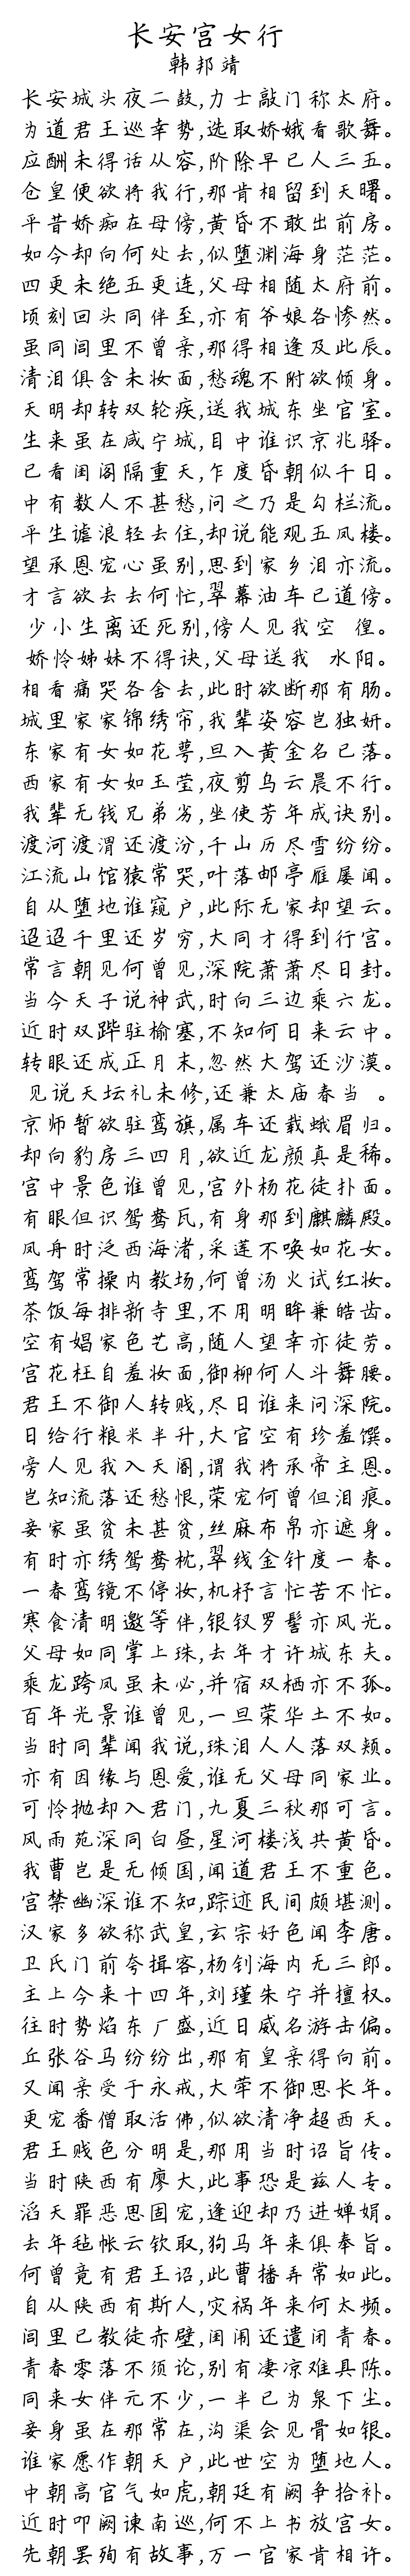 长安宫女行
韩邦靖
长安城头夜二鼓,力士敲门称太府。
为道君王巡幸势,选取娇娥看歌舞。
应酬未得话从容,阶除早已人三五。
仓皇便欲将我行,那肯相留到天曙。
平昔娇痴在母傍,黄昏不敢出前房。
如今却向何处去,似堕渊海身茫茫。
四更未绝五更连,父母相随太府前。
顷刻回头同伴至,亦有爷娘各惨然。
虽同闾里不曾亲,那得相逢及此辰。
清泪俱含未妆面,愁魂不附欲倾身。
天明却转双轮疾,送我城东坐官室。
生来虽在咸宁城,目中谁识京兆驿。
已看闺阁隔重天,乍度昏朝似千日。
中有数人不甚愁,问之乃是勾栏流。
平生谑浪轻去住,却说能观五凤楼。
望承恩宠心虽别,思到家乡泪亦流。
才言欲去去何忙,翠幕油车已道傍。
少小生离还死别,傍人见我空 徨。
娇怜姊妹不得诀,父母送我 水阳。
相看痛哭各舍去,此时欲断那有肠。
城里家家锦绣帘,我辈姿容岂独妍。
东家有女如花萼,旦入黄金名已落。
西家有女如玉莹,夜剪乌云晨不行。
我辈无钱兄弟劣,坐使芳年成诀别。
渡河渡渭还渡汾,千山历尽雪纷纷。
江流山馆猿常哭,叶落邮亭雁屡闻。
自从堕地谁窥户,此际无家却望云。
迢迢千里还岁穷,大同才得到行宫。
常言朝见何曾见,深院萧萧尽日封。
当今天子说神武,时向三边乘六龙。
近时双跸驻榆塞,不知何日来云中。
转眼还成正月末,忽然大驾还沙漠。
见说天坛礼未修,还兼太庙春当 。
京师暂欲驻鸾旗,属车还载蛾眉归。
却向豹房三四月,欲近龙颜真是稀。
宫中景色谁曾见,宫外杨花徒扑面。
有眼但识鸳鸯瓦,有身那到麒麟殿。
凤舟时泛西海渚,采莲不唤如花女。
鸾驾常操内教场,何曾汤火试红妆。
茶饭每排新寺里,不用明眸兼皓齿。
空有娼家色艺高,随人望幸亦徒劳。
宫花枉自羞妆面,御柳何人斗舞腰。
君王不御人转贱,尽日谁来问深院。
日给行粮米半升,大官空有珍羞馔。
旁人见我入天阍,谓我将承帝主恩。
岂知流落还愁恨,荣宠何曾但泪痕。
妾家虽贫未甚贫,丝麻布帛亦遮身。
有时亦绣鸳鸯枕,翠线金针度一春。
一春鸾镜不停妆,机杼言忙苦不忙。
寒食清明邀等伴,银钗罗髻亦风光。
父母如同掌上珠,去年才许城东夫。
乘龙跨凤虽未必,并宿双栖亦不孤。
百年光景谁曾见,一旦荣华土不如。
当时同辈闻我说,珠泪人人落双颊。
亦有因缘与恩爱,谁无父母同家业。
可怜抛却入君门,九夏三秋那可言。
风雨苑深同白昼,星河楼浅共黄昏。
我曹岂是无倾国,闻道君王不重色。
宫禁幽深谁不知,踪迹民间颇堪测。
汉家多欲称武皇,玄宗好色闻李唐。
卫氏门前夸揖客,杨钊海内无三郎。
主上今来十四年,刘瑾朱宁并擅权。
往时势焰东厂盛,近日威名游击偏。
丘张谷马纷纷出,那有皇亲得向前。
又闻亲受于永戒,大荤不御思长年。
更宠番僧取活佛,似欲清净超西天。
君王贱色分明是,那用当时诏旨传。
当时陕西有廖大,此事恐是兹人专。
滔天罪恶思固宠,逢迎却乃进婵娟。
去年毡帐云钦取,狗马年来俱奉旨。
何曾竟有君王诏,此曹播弄常如此。
自从陕西有斯人,灾祸年来何太频。
闾里已教徒赤壁,闺闹还遣闭青春。
青春零落不须论,别有凄凉难具陈。
同来女伴元不少,一半已为泉下尘。
妾身虽在那常在,沟渠会见骨如银。
谁家愿作朝天户,此世空为堕地人。
中朝高官气如虎,朝廷有阙争拾补。
近时叩阙谏南巡,何不上书放宫女。
先朝罢殉有故事,万一官家肯相许。